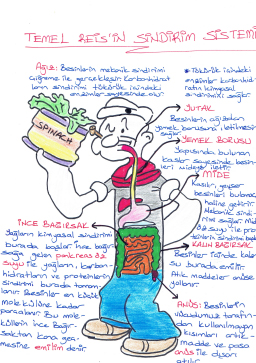 TEMEL REİS'İN SİNDİRİM SİSTEMİ
Ağız: Besinlerin mekanik sindirimi
çiğneme ile gerçekleşir. Karbonhidrat
ların sindirimi tükürük içindeki
enzimler sayesinde olur.
* Tükürük içindeki
enzimler karbonhid-
ratın kimyasal
sindirimini sağlar.
SPINACH
YUTAK
Besinlerin ağızdan
yemek borusuna iletilmesini
sağlar.
YEMEK BORUSU
Yapısında bulunan
kaslar sayesinde besin-
leri mideye iletir.
MİDE
Kasılır, gevşer
besinleri bulamaç
haline getirir.
Mekanik sindi
rimi sağlar. Mide
öz suyu ile pro
teinlerin sindirimi başlar
İNCE BAĞIRSAK
Yağların kimyasal sindirimi
burada başlar. İnce bağır
sağa gelen pankreas öz
suyu ile yağların, karbon-
hidratların ve proteinlerin
sindirimi burada tamam
lanır. Besinler en küçük
moleküllere kadar
parçalanır. Bu mole-
küllerin ince Bağır-
saktan kana geç-
mesine emilim denir.
KALIN BAĞIRSAK
Besinler içinde kalan
su burada emilir.
Atık maddeler anüse
yollanır.
ANÜS: Besinlerin
vücudumuz tarafın-
dan kullanılmayan
kısımları atık
madde ve posa
anüs ile dışarı
atılır.